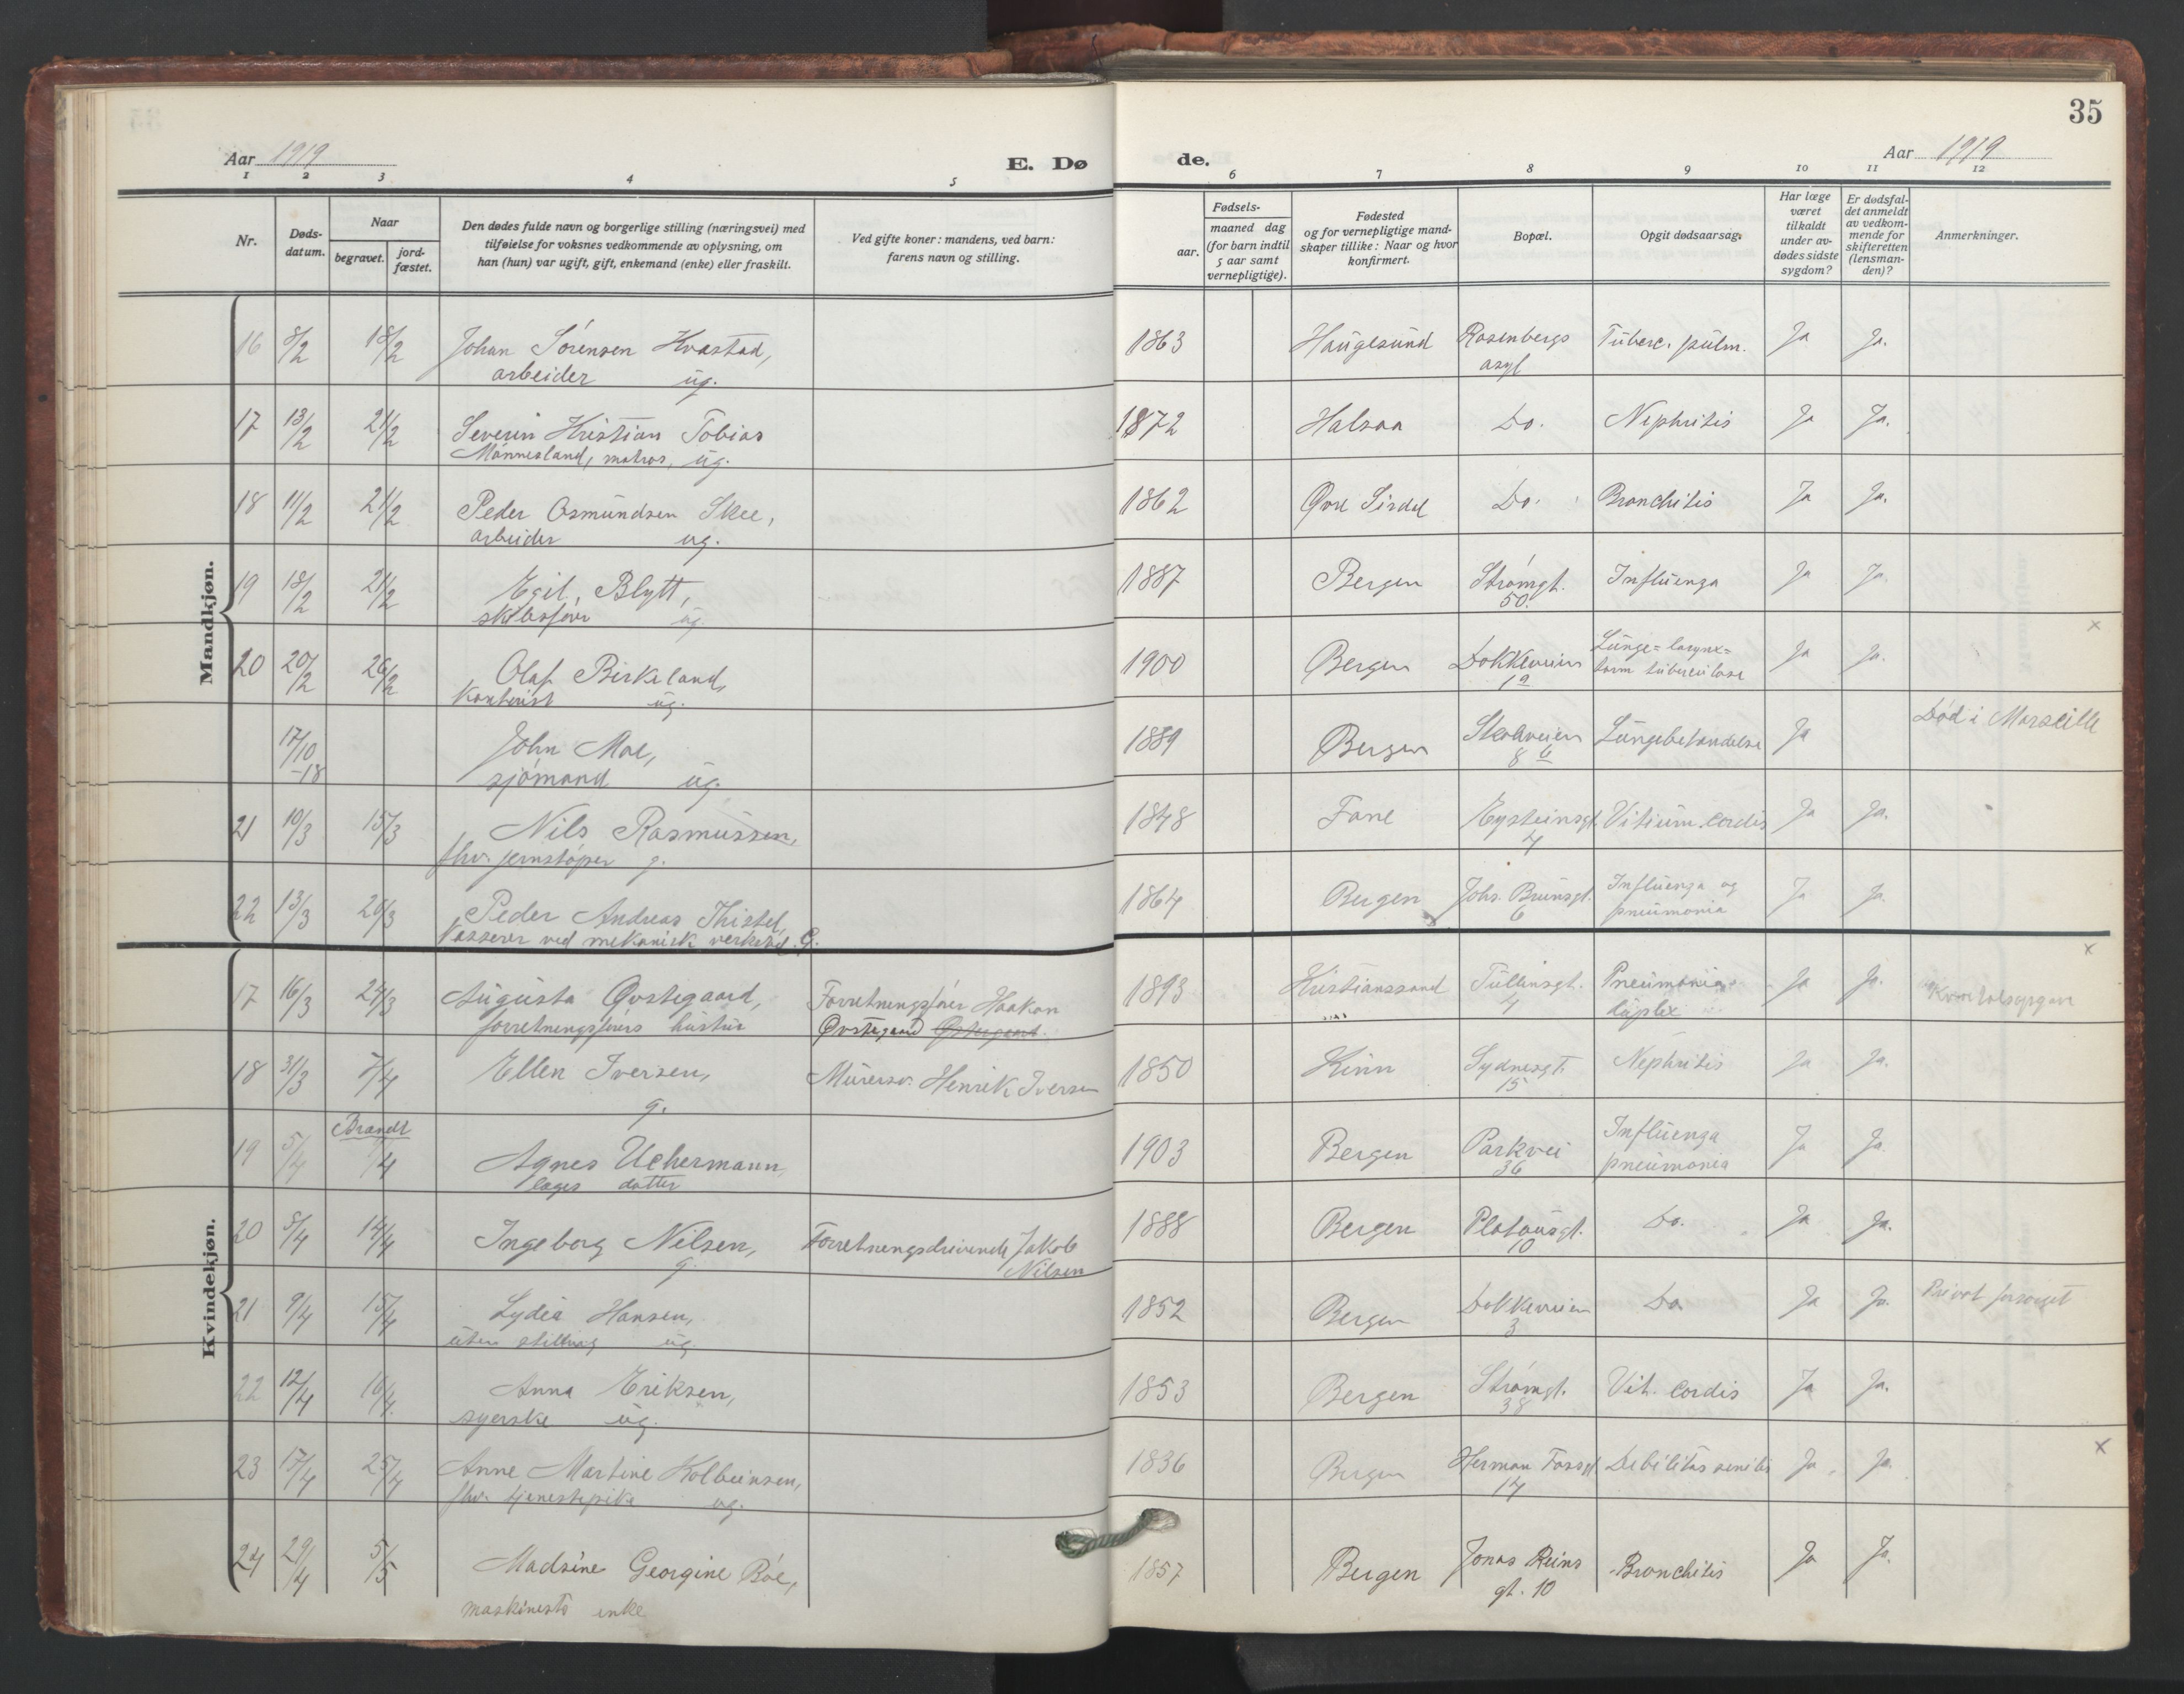 35
Aar 1919 E. Dø de. Aar 1919
1 2 3 4 5 6 7 8 9 10 11 12
Nr.
Døds-
datum.
Naar
begravet.
jord-
fæstet.
Den dødes fulde navn og borgerlige stilling (næringsvei) med
tilføielse for voksnes vedkommende av oplysning, om
han (hun) var ugift, gift, enkemand (enke) eller fraskilt.
Ved gifte koner: mandens, ved barn:
farens navn og stilling.
Fødsels-
aar.
maaned dag
(for barn indtil
5 aar samt
vernepligtige).
Fødested
og for vernepligtige mand-
skaper tillike: Naar og hvor
konfirmert.
Bopæl.
Opgit dødsaarsag.
Har læge
været
tilkaldt
under av-
dødes sidste
sygdom?
Er dødsfal-
det anmeldt
av vedkom-
mende for
skifteretten
(lensman-
den)?
Anmerkninger.
Mandkjøn.
16 8/2 18/2 Johan Sörensen Kvastad, 1863 Haugesund Rosenbergs Tuberc. pulm. Ja Ja.
arbeider ug. asyl
17 13/2 21/2 Severin Kristian Tobias 1872 Halsaa Do. Nephritis Ja Ja.
Mönnesland, matros, ug.
18 11/2 21/2 Peder Osmundsen Skee, 1862 Øvre Sirdal Do. Bronchitis Ja Ja.
arbeider ug.
19 18/2 21/2 Egil Blytt, 1887 Bergen Strömgt. Influenza Ja Ja.
ug. 50.
20 20/2 26/2 Olaf Birkeland, 1900 Bergen Dokkeveien Lunge= larynx= Ja Ja. x
Kontorist ug. 1a tarm tuberculose
17/10 -18 John Moe, 1889 Bergen Lungebetændelse Ja Död i Marseille
sjömand ug. 8 b
21 10/3 15/3 Nils Rasmussen, 1848 Fane Eysteinsgt. Vitium cordis Ja Ja.
fhv. jernstöper g. 4
22 13/3 20/3 Peder Andreas Thistel, 1864 Bergen Johs. Brunsgt. Influenza og Ja Ja.
Kasserer ved mekanisk verksted. G. 6 pneumonia
Kvindekjøn.
17 16/3 24/3 Augusta Qvstegaard, Forretningsförer Haakon 1893 Kristianssand Tullinsgt. Pneumonia Ja Ja. x
forretningsförers hustru 4 duplex
18 31/3 7/4 Ellen Iversen, Murersv. Henrik Iversen 1850 Kinn Sydnesgt. Nephritis Ja Ja.
g. 15
Brændt
19 5/4 /4 Agnes Uchermann, 1903 Bergen Parkvei Influenza Ja Ja.
læges datter 36 pneumonia
20 8/4 14/4 Ingeborg Nilsen, Forretningsdrivende Jakob 1888 Bergen Platousgt. Do. Ja Ja.
g. Nilsen 10
21 9/4 15/4 Lydia Hansen, 1852 Bergen Dokkeveien Do. Ja Ja. Privat forsorget
uten stilling ug. 3
22 12/4 16/4 Anna Eriksen, 1853 Bergen Strömgt. Vit. cordis Ja Ja.
syerske ug. 38
23 17/4 25/4 Anne Martine Kolbeinsen, 1836 Bergen Herman Fossgt. Debilitas senilis Ja Ja. x
fhv. tjenestepike ug. 14
24 29/4 5/5 Madsine Georgine Böe, 1857 Bergen Jonas Reins Bronchitis Ja Ja.
maskinists enke gt. 10